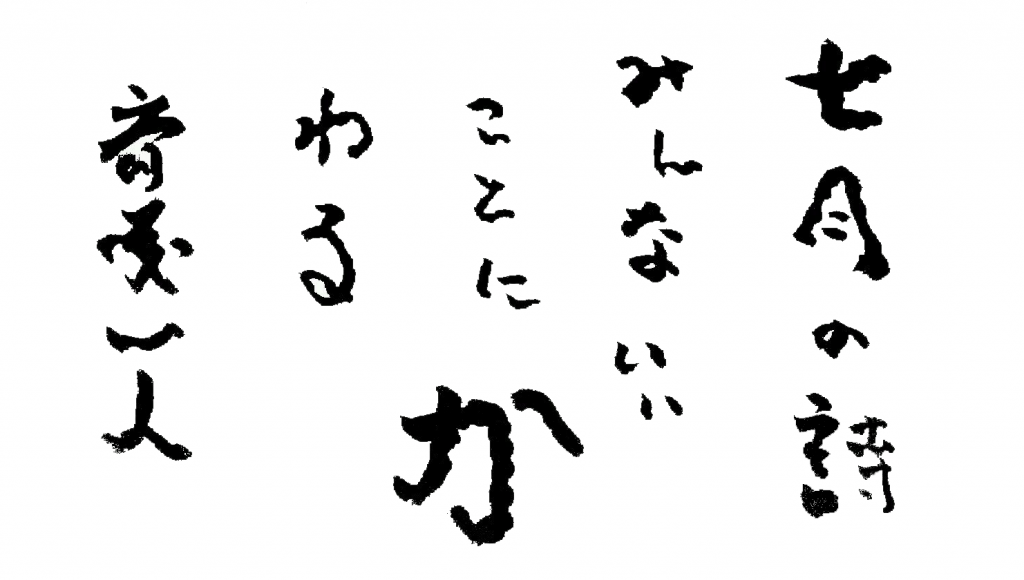 七月の詩
みんないい
ことにか
わる
斎藤一人